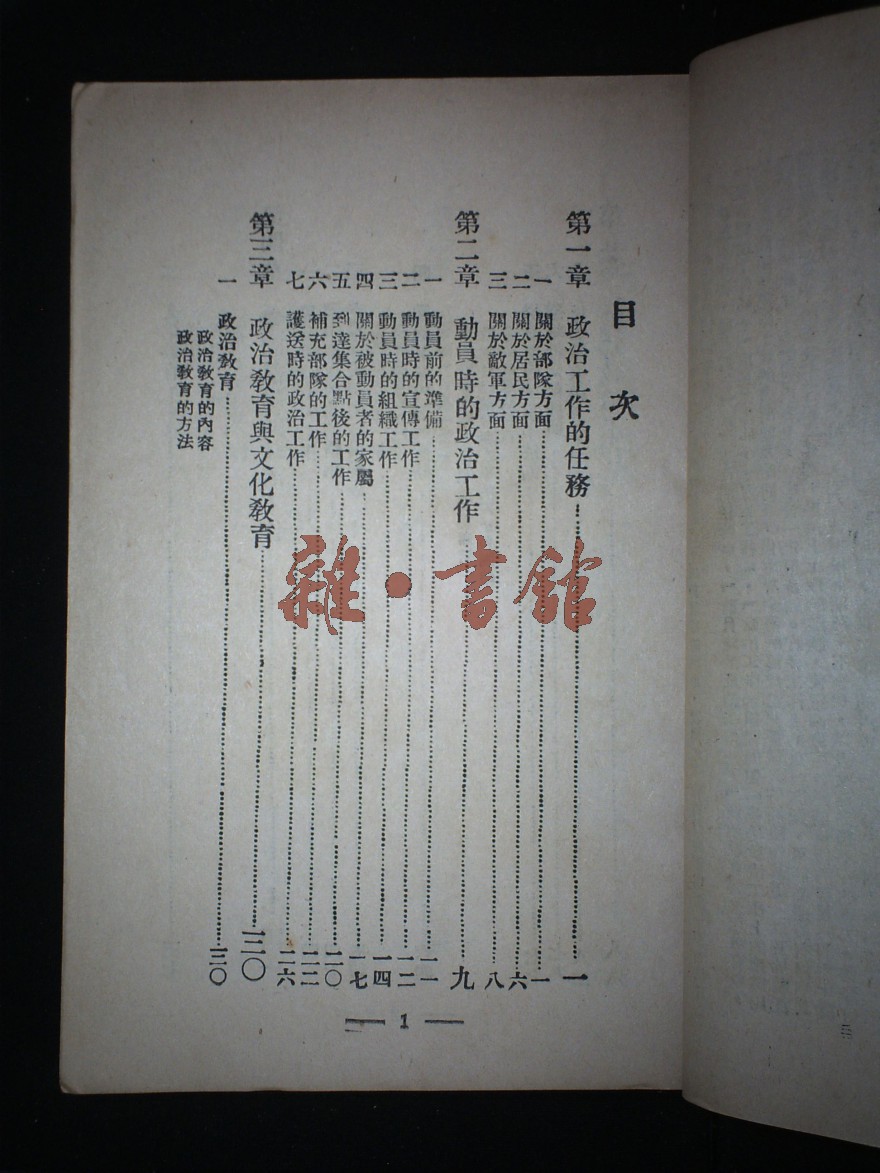 目次
第一章 政治工作的任務……一
一 關於部隊方面……一
二 關於居民方面……六
三 關於敵軍方面……八
第二章 動員時的政治工作……九
一 動員前的準備……一一
二 動員時的宣傳工作……一二
三 動員時的組織工作……一四
四 關於被動員者的家屬……一七
五 到達集合點後的工作……二〇
六 補充部隊的工作……二二
七 護送時的政治工作……二六
第三章 政治教育與文化教育……三〇
一 政治教育……三〇
政治教育的內容
政治教育的方法
— 1 —
雜·書館